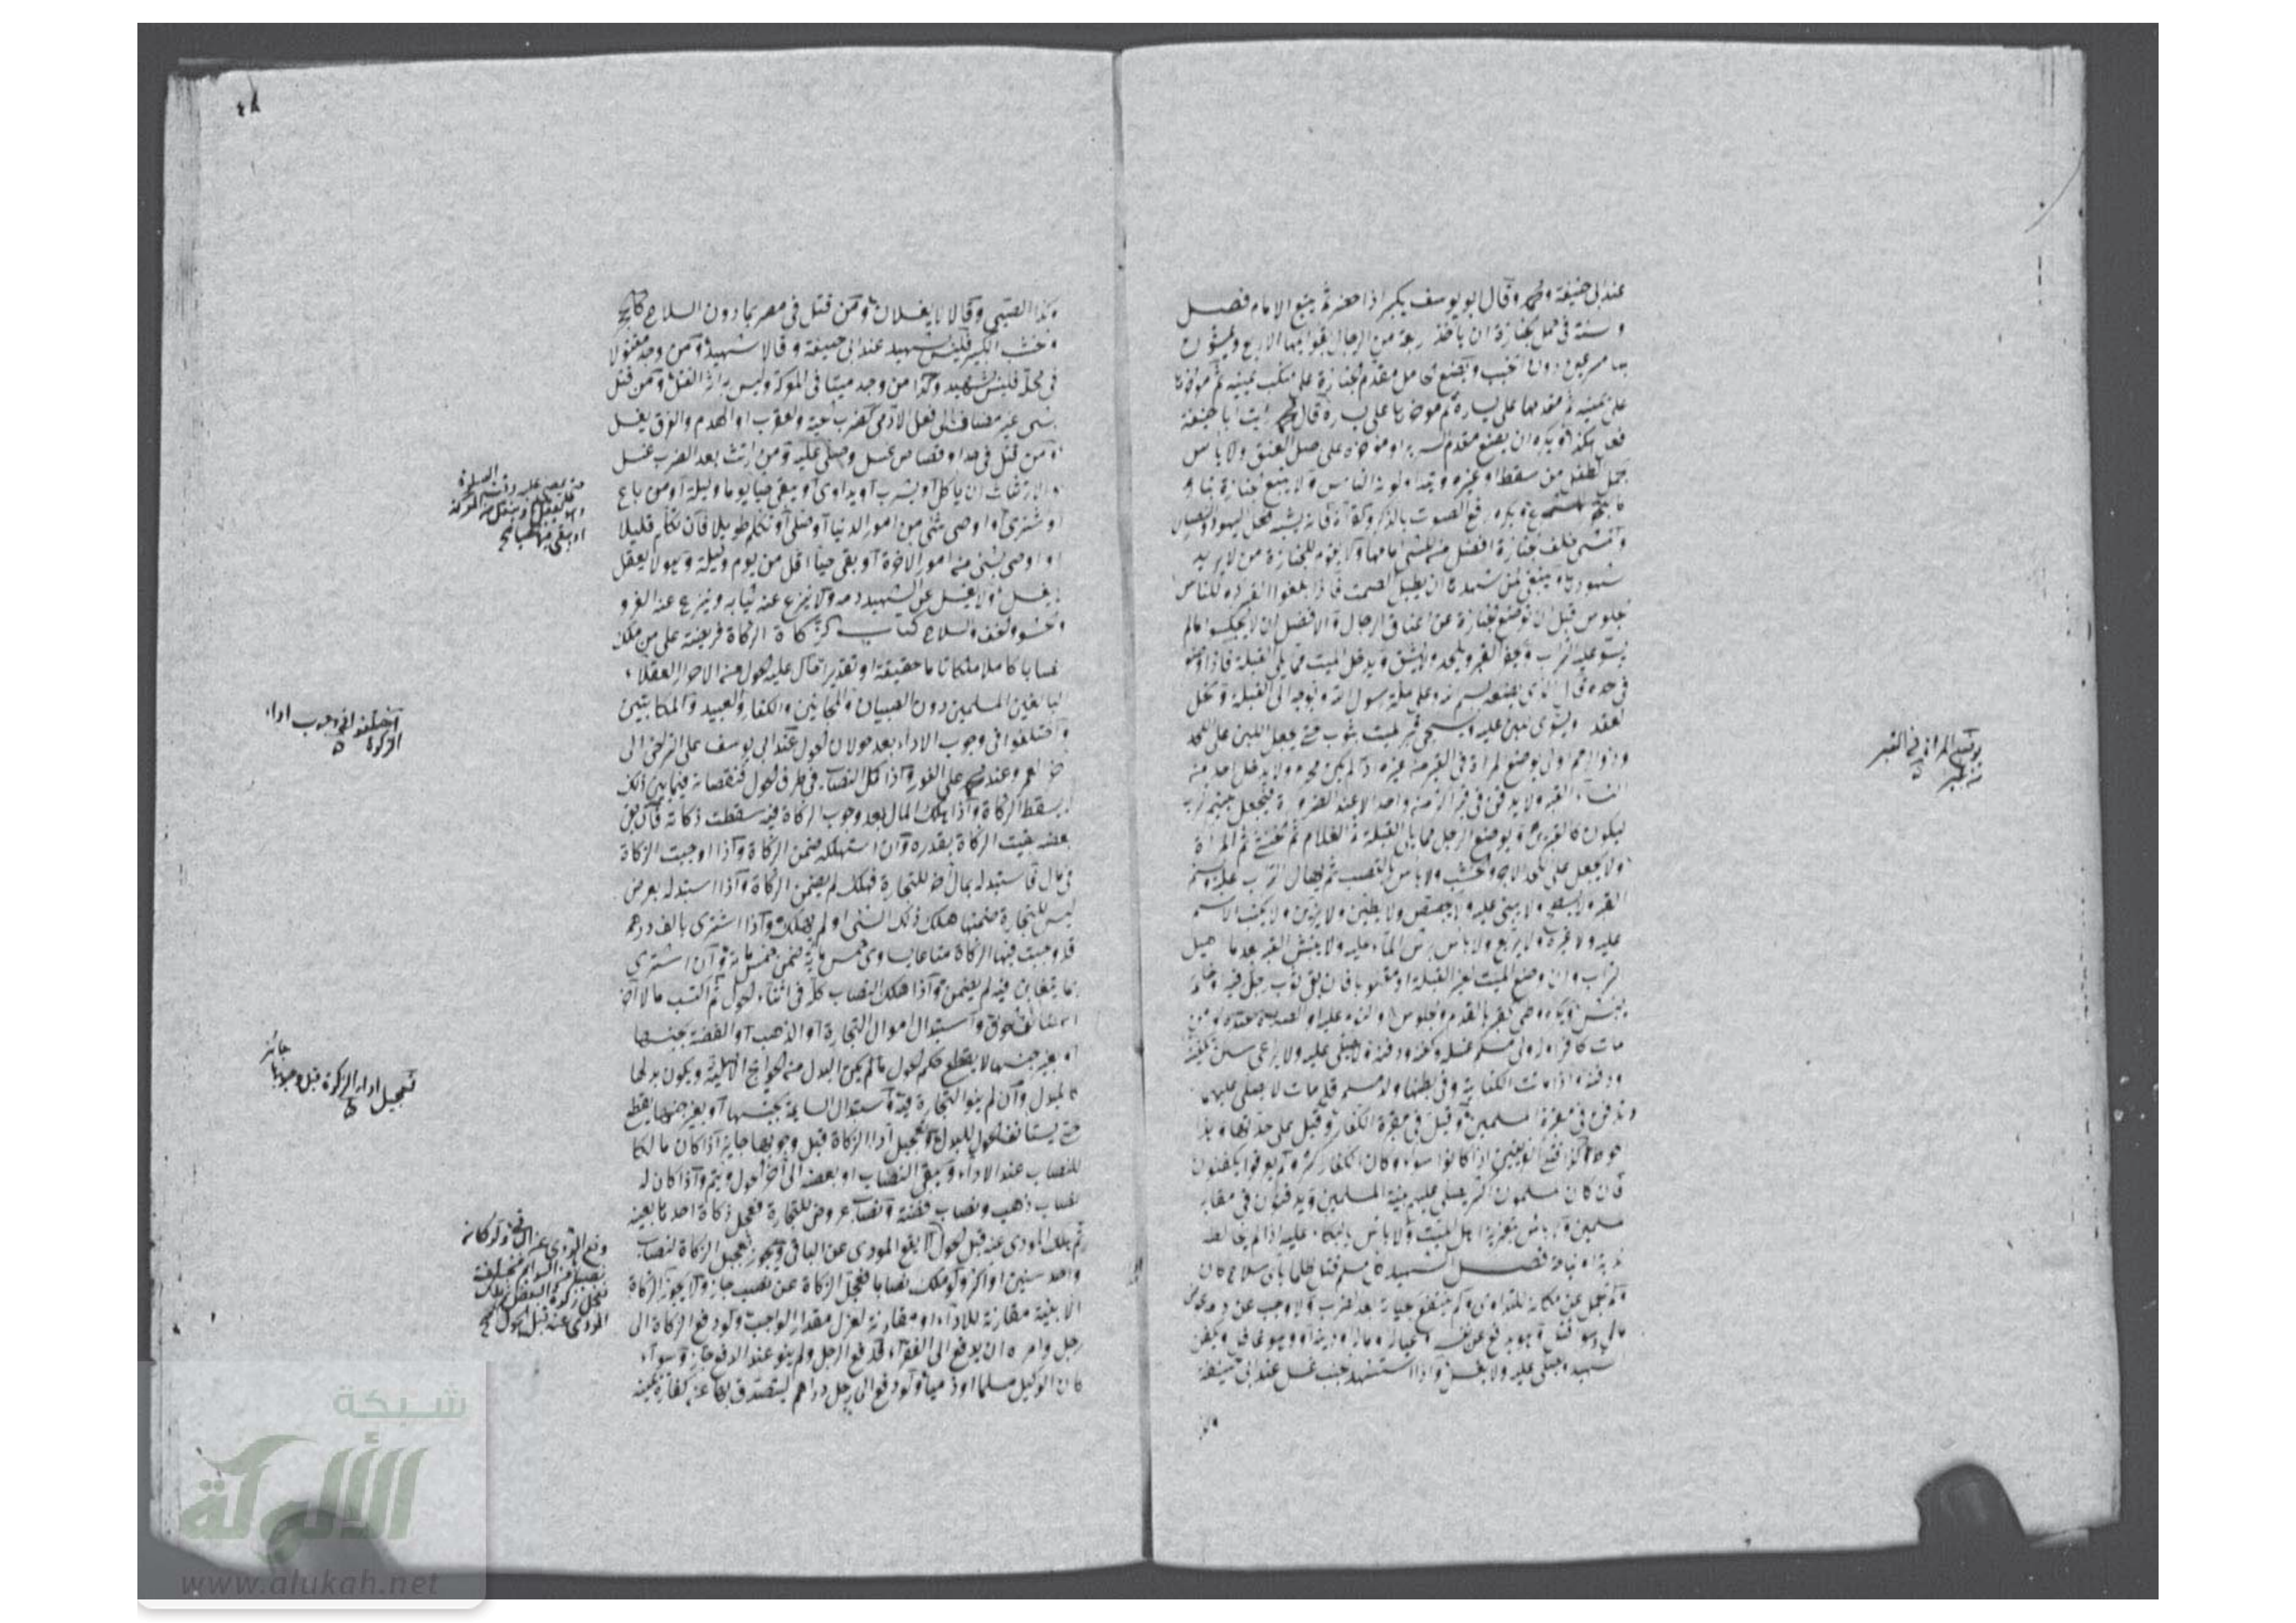 عند ابي حنيفة ومحمد وقال ابو يوسف يكبر اذا حضر ثم يتبع الامام فصل
والسنة في حمل الجنازة ان يأخذ اربعة من الرجال بقوايمها الاربع ويمشون
بها مسرعين دون الخبب ويضع الحامل مقدم الجنازة على منكب يمينه ثم مؤخرها
على يمينه ثم مقدمها على يساره ثم مؤخرها على يساره قال محمد رأيت ابا حنيفة
فعل هكذا ويكره ان يضع مقدم السرير او مؤخره على اصل العنق ولا بأس
بحمل الطفل من سقط او غيره ويتداولونه الناس ولا يتبع الجنازة بنار
ويكره رفع الصوت بالذكر وقراءة فانه يشبه فعل اليهود والنصارى
والمشي خلف الجنازة افضل من المشي امامها ولا يقوم للجنازة من لا يريد
شهودها وينبغي لمن شهدها ان يطيل الصمت فاذا بلغوا القبر كره للناس
الجلوس قبل ان توضع الجنازة عن اعناق الرجال والافضل ان لا يجلسوا ما لم
يستو عليه التراب ويحفر القبر ويلحد ولا يشق ويدخل الميت مما يلي القبلة فاذا وضع
في لحده قال الذي يضعه بسم الله وعلى ملة رسول الله ويوجه الى القبلة وتحل
العقد ويسوى اللبن عليه ويسجى قبر الميت بثوب حتى يجعل اللبن على اللحد
وذو الرحم اولى بوضع المرأة في القبر من غيره اذا لم يكن محرم ولا يدخل احد من
النساء القبر ولا يدفن في قبر اكثر من واحد الا عند الضرورة فيجعل بينهم تراب
ليكون كالقبرين ويوضع الرجل مما يلي القبلة ثم الغلام ثم الخنثى ثم المرأة
ولا يجعل على اللحد الآجر والخشب ولا بأس بالقصب ثم يهال التراب عليه ويسنم
القبر ولا يسطح ولا يبنى عليه ولا يجصص ولا يطين ولا يزين ولا يكتب الاسم
عليه ولا غيره ولا يربع ولا بأس برش الماء عليه ولا ينبش القبر بعد ما اهيل
التراب وان وضع الميت لغير القبلة او مقلوبا فان بقي ثوب رجل فيه او غيره
ينبش ويكره وطي القبر بالقدم والجلوس والنوم عليه والصلاة عنده ومن
مات كافرا وله ولي مسلم غسله وكفنه ودفنه ولا يصلي عليه ولا يراعي سنن تكفينه
ودفنه واذا ماتت الكتابية وفي بطنها ولد مسلم قد مات لا يصلى عليها
وتدفن في مقبرة المسلمين وقيل في مقبرة الكفار وقيل على حدتها وهذا
احوط وكذا قتلى الفريقين اذا كانوا سواء وكان الكفار اكثر ولم يعرفوا يكفنون
فان كان المسلمون اكثر يصلى عليهم بنية المسلمين ويدفنون في مقابر
المسلمين ولا بأس بتعزية اهل الميت ولا بأس بالبكاء عليه اذا لم يخالطه
ندبة او نياحة فصل الشهيد كل مسلم قتل ظلما بأي سلاح كان
ولم يحمل عن مكانه للتداوي ولم ينتفع بحياته بعد الضرب ولا وجب عن دمه عوض
مالي وسواء قتل وهو يدفع عن نفسه او عياله او ماله او دينه او وهو غافل ويكفن
الشهيد ويصلى عليه ولا يغسل واذا استشهد جنب غسل عند ابي حنيفة
وكذا
يوضع المرأة في القبر
من غير
٤٨
وكذا الصبي وقالا لا يغسلان ومن قتل في مصر بما دون السلاح كالحجر
وخشب الكبير فليس بشهيد عند ابي حنيفة وقالا شهيد ومن وجد مقتولا
في محلة فليس بشهيد وكذا من وجد ميتا في المعركة وليس به اثر القتل ومن قتل
بشي غير مضاف الى فعل الآدمي كضرب الحية والعقرب او الهدم والغرق يغسل
ومن قتل في حد او قصاص غسل وصلي عليه ومن ارتث بعد الضرب غسل
والارتثاث ان يأكل او يشرب او يداوى او يبقى حيا يوما وليلة او من باع
او اشترى او اوصى بشي من امور الدنيا او صلى او تكلم طويلا فان تكلم قليلا
او اوصى بشي من امور الآخرة او بقي حيا اقل من يوم وليلة وهو لا يعقل
لا يغسل ولا يغسل عن الشهيد دمه ولا ينزع عنه ثيابه وينزع عنه الفرو
والحشو والخف والسلاح كتاب الزكاة الزكاة فريضة على من ملك
نصابا كاملا ملكا تاما حقيقة او تقديرا حال عليه الحول من الاحرار العقلاء
البالغين المسلمين دون الصبيان والمجانين والكفار والعبيد والمكاتبين
واختلفوا في وجوب الاداء بعد حولان الحول عند ابي يوسف على التراخي الى
آخر العمر وعند محمد على الفور واذا كمل النصاب في طرفي الحول فنقصانه فيما بين ذلك
لا يسقط الزكاة واذا هلك المال بعد وجوب الزكاة فيه سقطت زكاته فان بقي
بعضه بقيت الزكاة بقدره وان استهلكه ضمن الزكاة واذا وجبت الزكاة
في مال فاستبدله بمال آخر للتجارة فهلك لم يضمن الزكاة واذا استبدله بعرض
ليس للتجارة ضمنها هلك ذلك الشي او لم يهلك واذا اشترى بالف درهم
قد وجبت فيها الزكاة متاعا يساوي خمس مائة ضمن خمس مائة وان اشترى
بما يتغابن فيه لم يضمن واذا هلك النصاب كله في اثناء الحول ثم اكتسب مالا آخر
استأنف الحول واستبدال اموال التجارة او الذهب او الفضة بجنسها
او بغير جنسها لا يقطع حكم الحول ما لم يكن البدل من الحوائج الاصلية ويكون بدلها
كالمبدل وان لم ينو التجارة فيه واستبدال السائمة بجنسها او بغير جنسها يقطع
حتى يستأنف الحول للبدل وتعجيل اداء الزكاة قبل وجوبها جايز اذا كان مالكا
للنصاب عند الاداء ويبقى النصاب او بعضه الى آخر الحول ويتم واذا كان له
نصاب ذهب ونصاب فضة ونصاب عروض للتجارة فعجل زكاة احدها بعينه
ثم هلك المؤدى عنه قبل الحول لا يقع المؤدى عن الباقي ويجوز تعجيل الزكاة لنصاب
واحد سنين او اكثر ولو ملك نصابا فعجل الزكاة عن نصب جاز ولا يجوز الزكاة
الا بنية مقارنة للاداء او مقارنة لعزل مقدار الواجب ولو دفع الزكاة الى
رجل وامره ان يدفع الى الفقراء فدفع الرجل ولم ينو عند الدفع جاز وسواء
كان الوكيل مسلما او ذميا ولو دفع الى رجل دراهم ليتصدق بها عن كفارة يمينه
اختلفوا في وجوب اداء
الزكوة
تعجيل اداء الزكوة قبل وجوبها جائز
شبكة
الألوكة
www.alukah.net